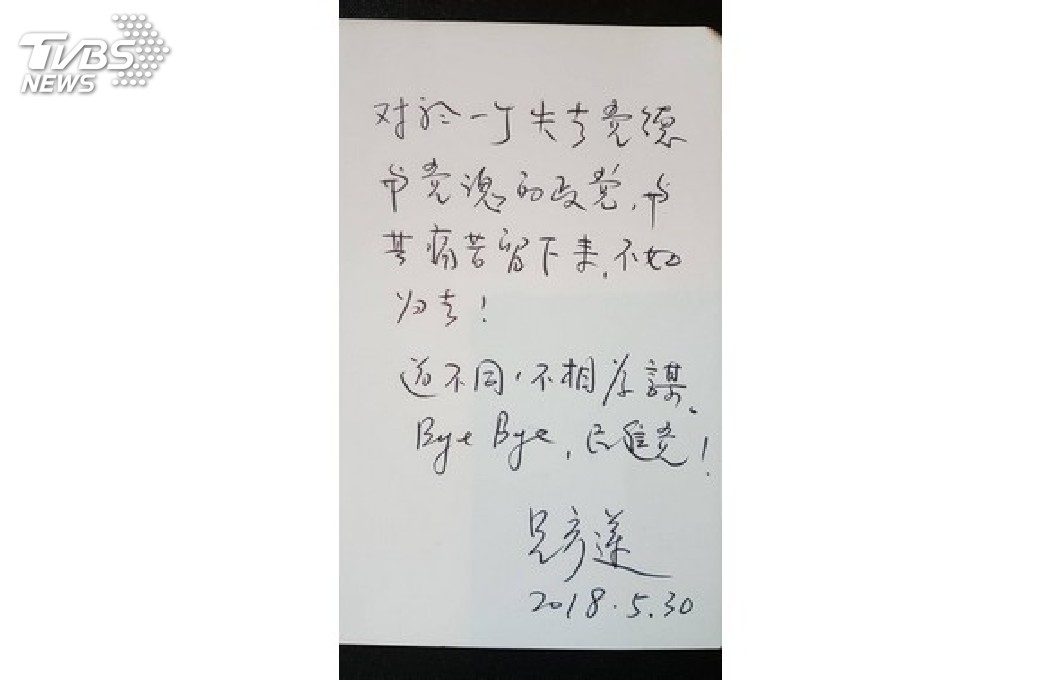 TVBS
NEWS
对於一个失去党德
与党魂的政党,与
其痛苦留下来,不如
归去!
道不同,不相为謀。
Bye Bye,民進党!
吕秀莲
2018.5.30